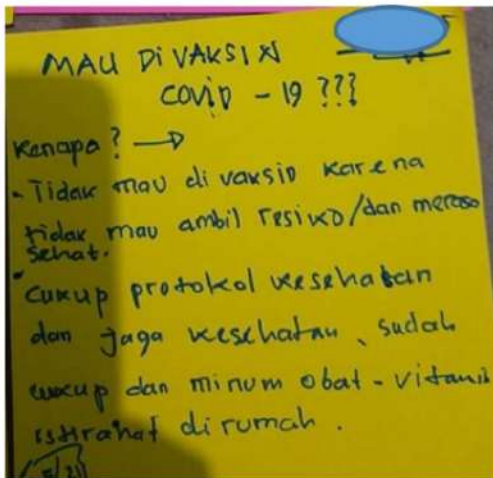 MAU DI VAKSIN
COVID - 19 ???
Kenapa ? →
- Tidak mau di vaksin karena
tidak mau ambil resiko/dan merasa
sehat.
• Cukup protokol kesehatan
dan jaga kesehatan, sudah
cukup dan minum obat - vitamin
istirahat di rumah.